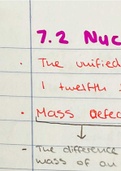 7.2 Nuc
The unified
1 twelfth
Mass defec
The difference
mass of an